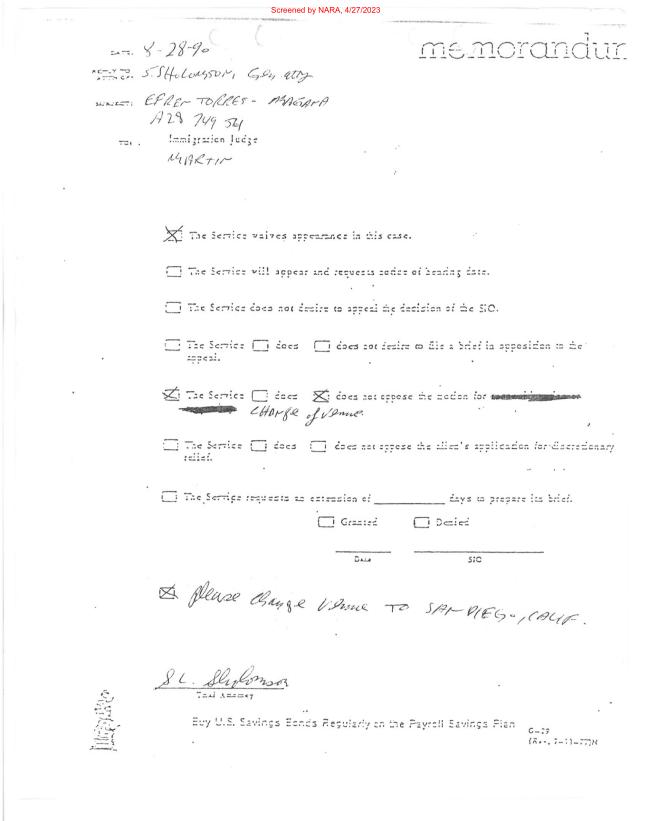 Screened by NARA, 4/27/2023
memorandum
DATE: 8-28-90
REPLY TO
ATTN OF: S. Sholomson, Gen atty
SUBJECT: EFREN TORRES- MAGANA
A28 749
TO: Immigration Judge
MARTIN
The Service waives appearance in this case.
The Service will appear and requests notice of hearing date.
The Service does not desire to appeal the decision of the SIO.
The Service does does not desire to file a brief in opposition to the
appeal.
The Service does does not oppose the motion for
change of venue
The Service does does not oppose the alien's application for discretionary
relief.
The Service requests an extension of __________ days to prepare its brief.
Granted Denied
Date SIO
please change venue TO SAN DIEGO, CALIF.
S L. Sholomson
Trial Attorney
Buy U.S. Savings Bonds Regularly on the Payroll Savings Plan
G-29